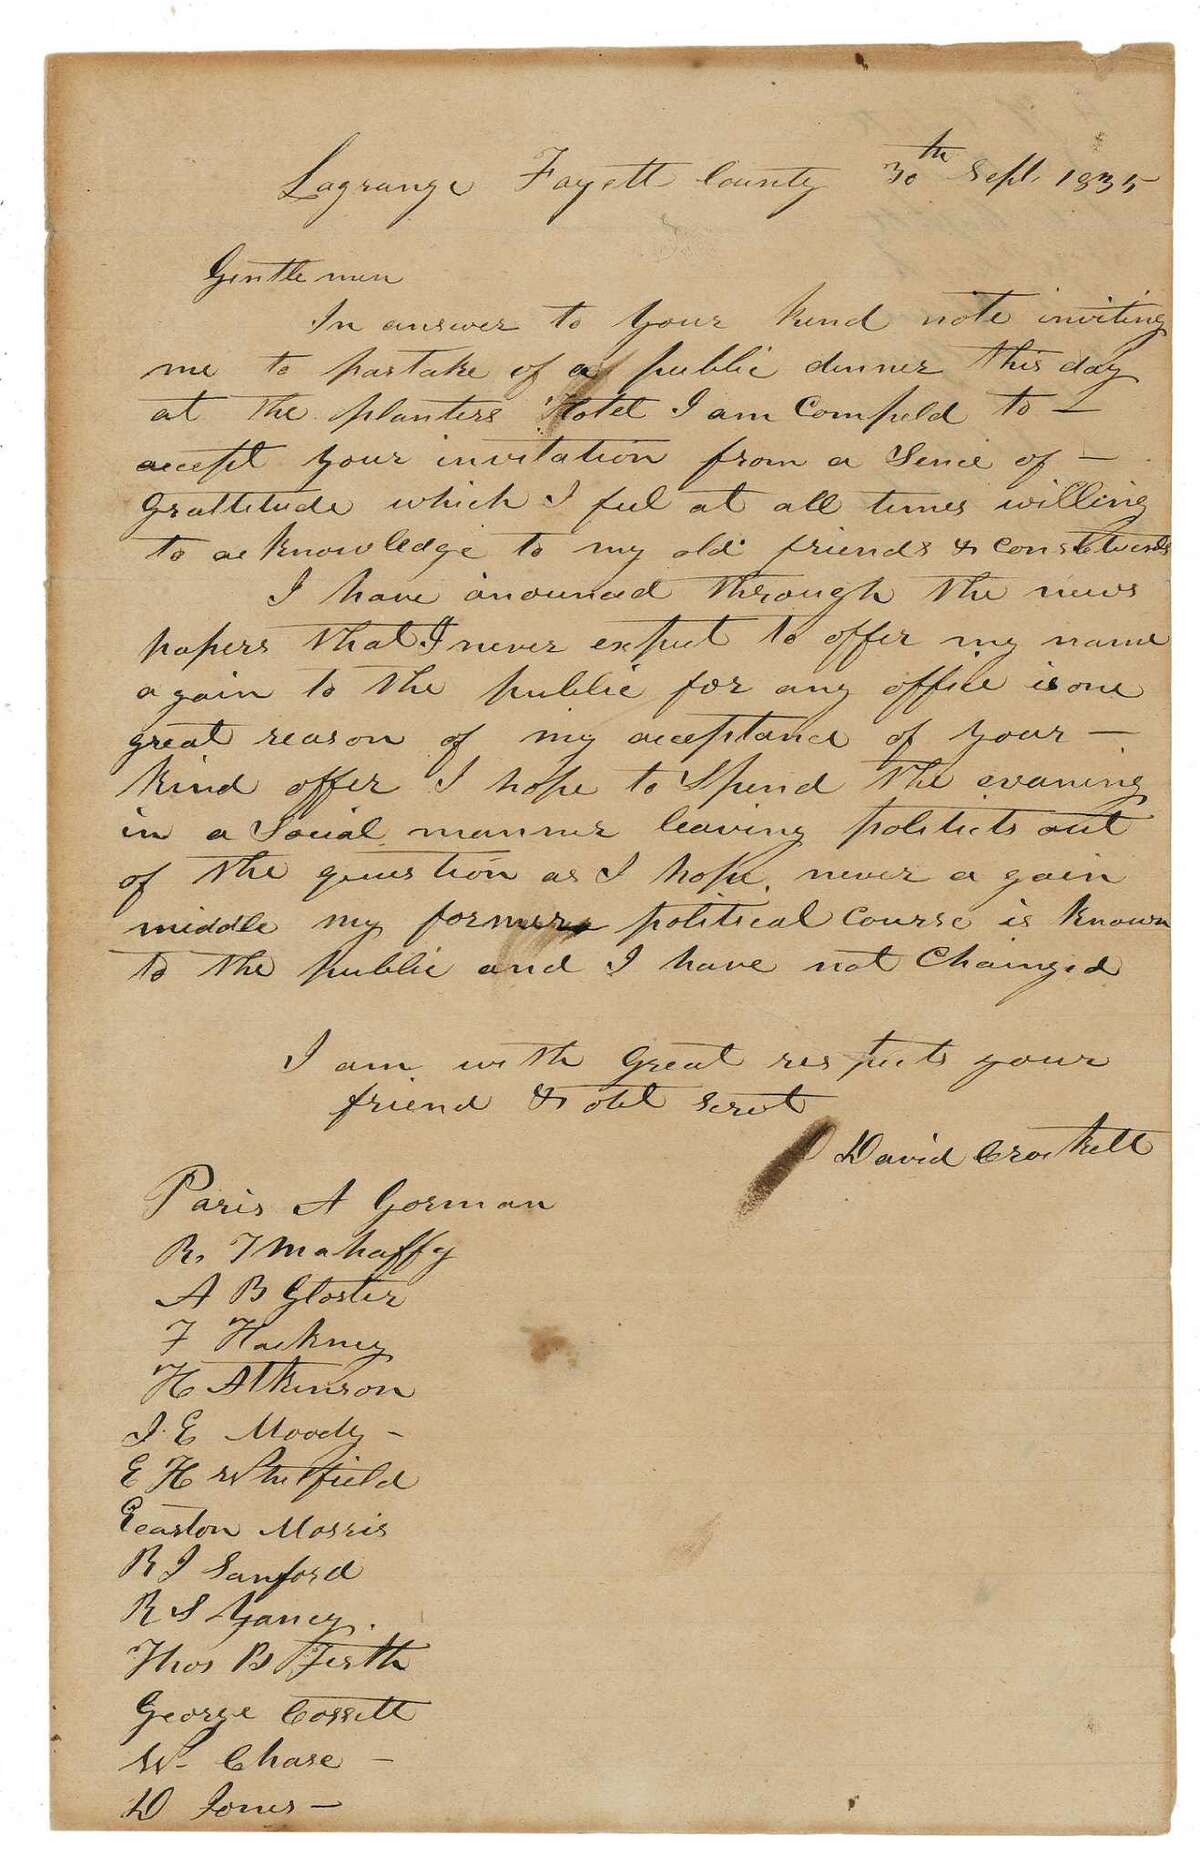 Lagrange Fayett County 30th Sept. 1835
Gentlemen
In answer to your kind note inviting
me to partake of a public dinner this day
at the planters Hotel I am Compeld to -
accept your invitation from a Sence of -
Grattitude which I feel at all times willing
to acknowledge to my old friends & constetuents
I have anounced through the news
papers that I never expect to offer my name
a gain to the public for any office is one
great reason of my acceptance of your -
kind offer I hope to Spend the evaning
in a Social manner leaving politicts out
of the question as I hope never a gain
middle my former political course is known
to the public and I have not Chainged
I am with Great respects your
friend & obt servt
David Crockett
Paris A Gorman
R. T Mahaffy
A B Gloster
F Hackney
H Atkinson
J. E Moody -
E H Whitfield
Eeaston Morris
R J Sanford
R S Yancy.
Thos B Firth
George Cossett
W- Chase -
D Jones -